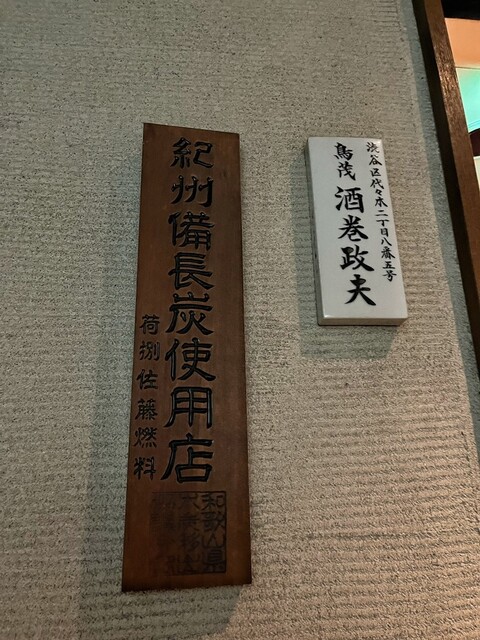 渋谷区代々木二丁目八番五号
鳥茂 酒巻政夫
紀州備長炭使用店
荷捌佐藤燃料
和歌山県